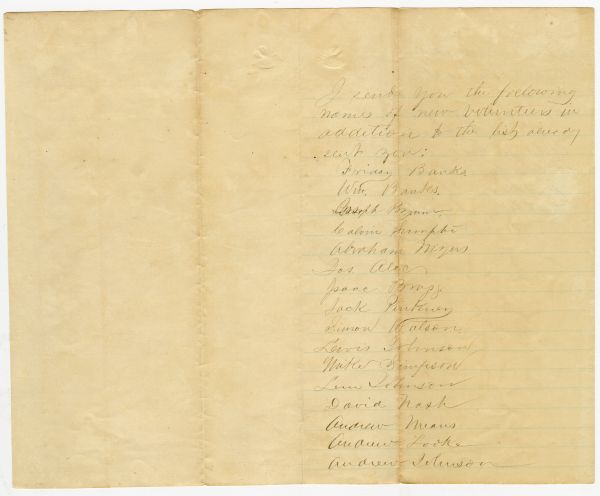 I send you the following
names of new voluntiers in
addition to the list already
sent you:
Friday Banks
Wm. Banks.
Joseph
Calvin
Abraham Meyers
Jos
Isaac Bragg.
Jack Pinkney
Simon Watson,
Lewis Johnson,
Mike Simpson
Johnson
David Nash
Andrew Means
Andrew Locke
Andrew Johnson